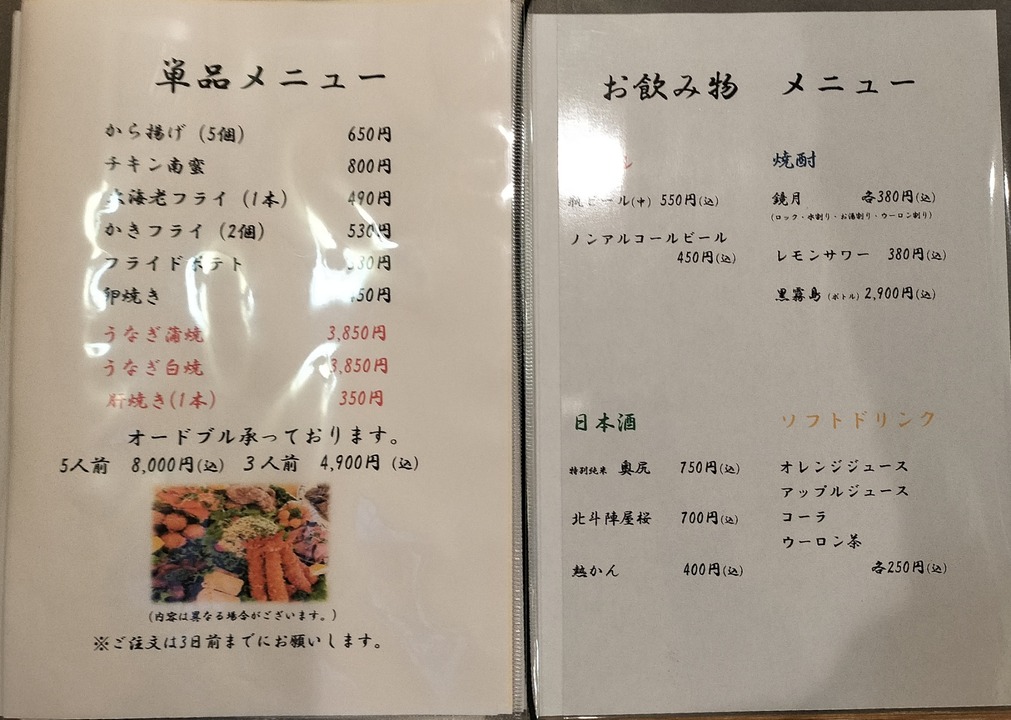 単品メニュー
から揚げ (5個) 650円
チキン南蛮 800円
大海老フライ (1本) 490円
かきフライ (2個) 530円
フライドポテト
卵焼き
うなぎ蒲焼 3,850円
うなぎ白焼 3,850円
肝焼き(1本) 350円
オードブル承っております。
5人前 8,000円(込) 3人前 4,900円 (込)
(内容は異なる場合がございます。)
※ご注文は3日前までにお願いします。
お飲み物 メニュー
瓶ビール(中) 550円(込)
ノンアルコールビール
450円(込)
焼酎
鏡月 各380円(込)
(ロック・水割り・お湯割り・ウーロン割り)
レモンサワー 380円(込)
黒霧島 (ボトル) 2,900円(込)
日本酒
特別純米 奥尻 750円(込)
北斗陣屋桜 700円(込)
熱かん 400円(込)
ソフトドリンク
オレンジジュース
アップルジュース
コーラ
ウーロン茶
各250円(込)